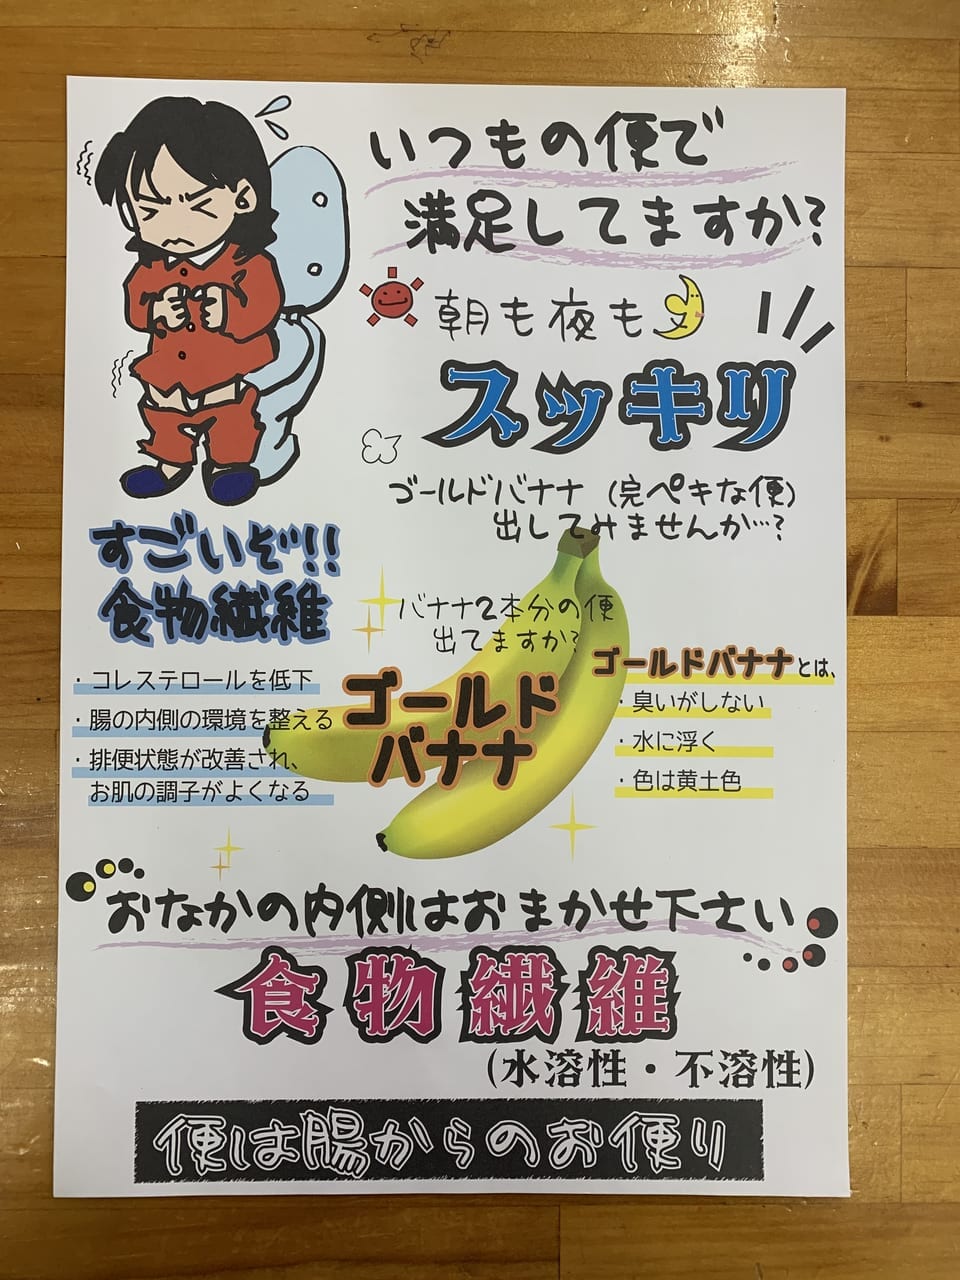 いつもの便で
満足してますか?
朝も夜も
スッキリ
ゴールドバナナ (完ペキな便)
出してみませんか…?
すごいぞ!!
食物繊維
・コレステロールを低下
・腸の内側の環境を整える
・排便状態が改善され、
お肌の調子がよくなる
バナナ2本分の便
出てますか?
ゴールド
バナナ
ゴールドバナナとは、
・臭いがしない
・水に浮く
・色は黄土色
おなかの内側はおまかせ下さい
食物繊維
(水溶性・不溶性)
便は腸からのお便り